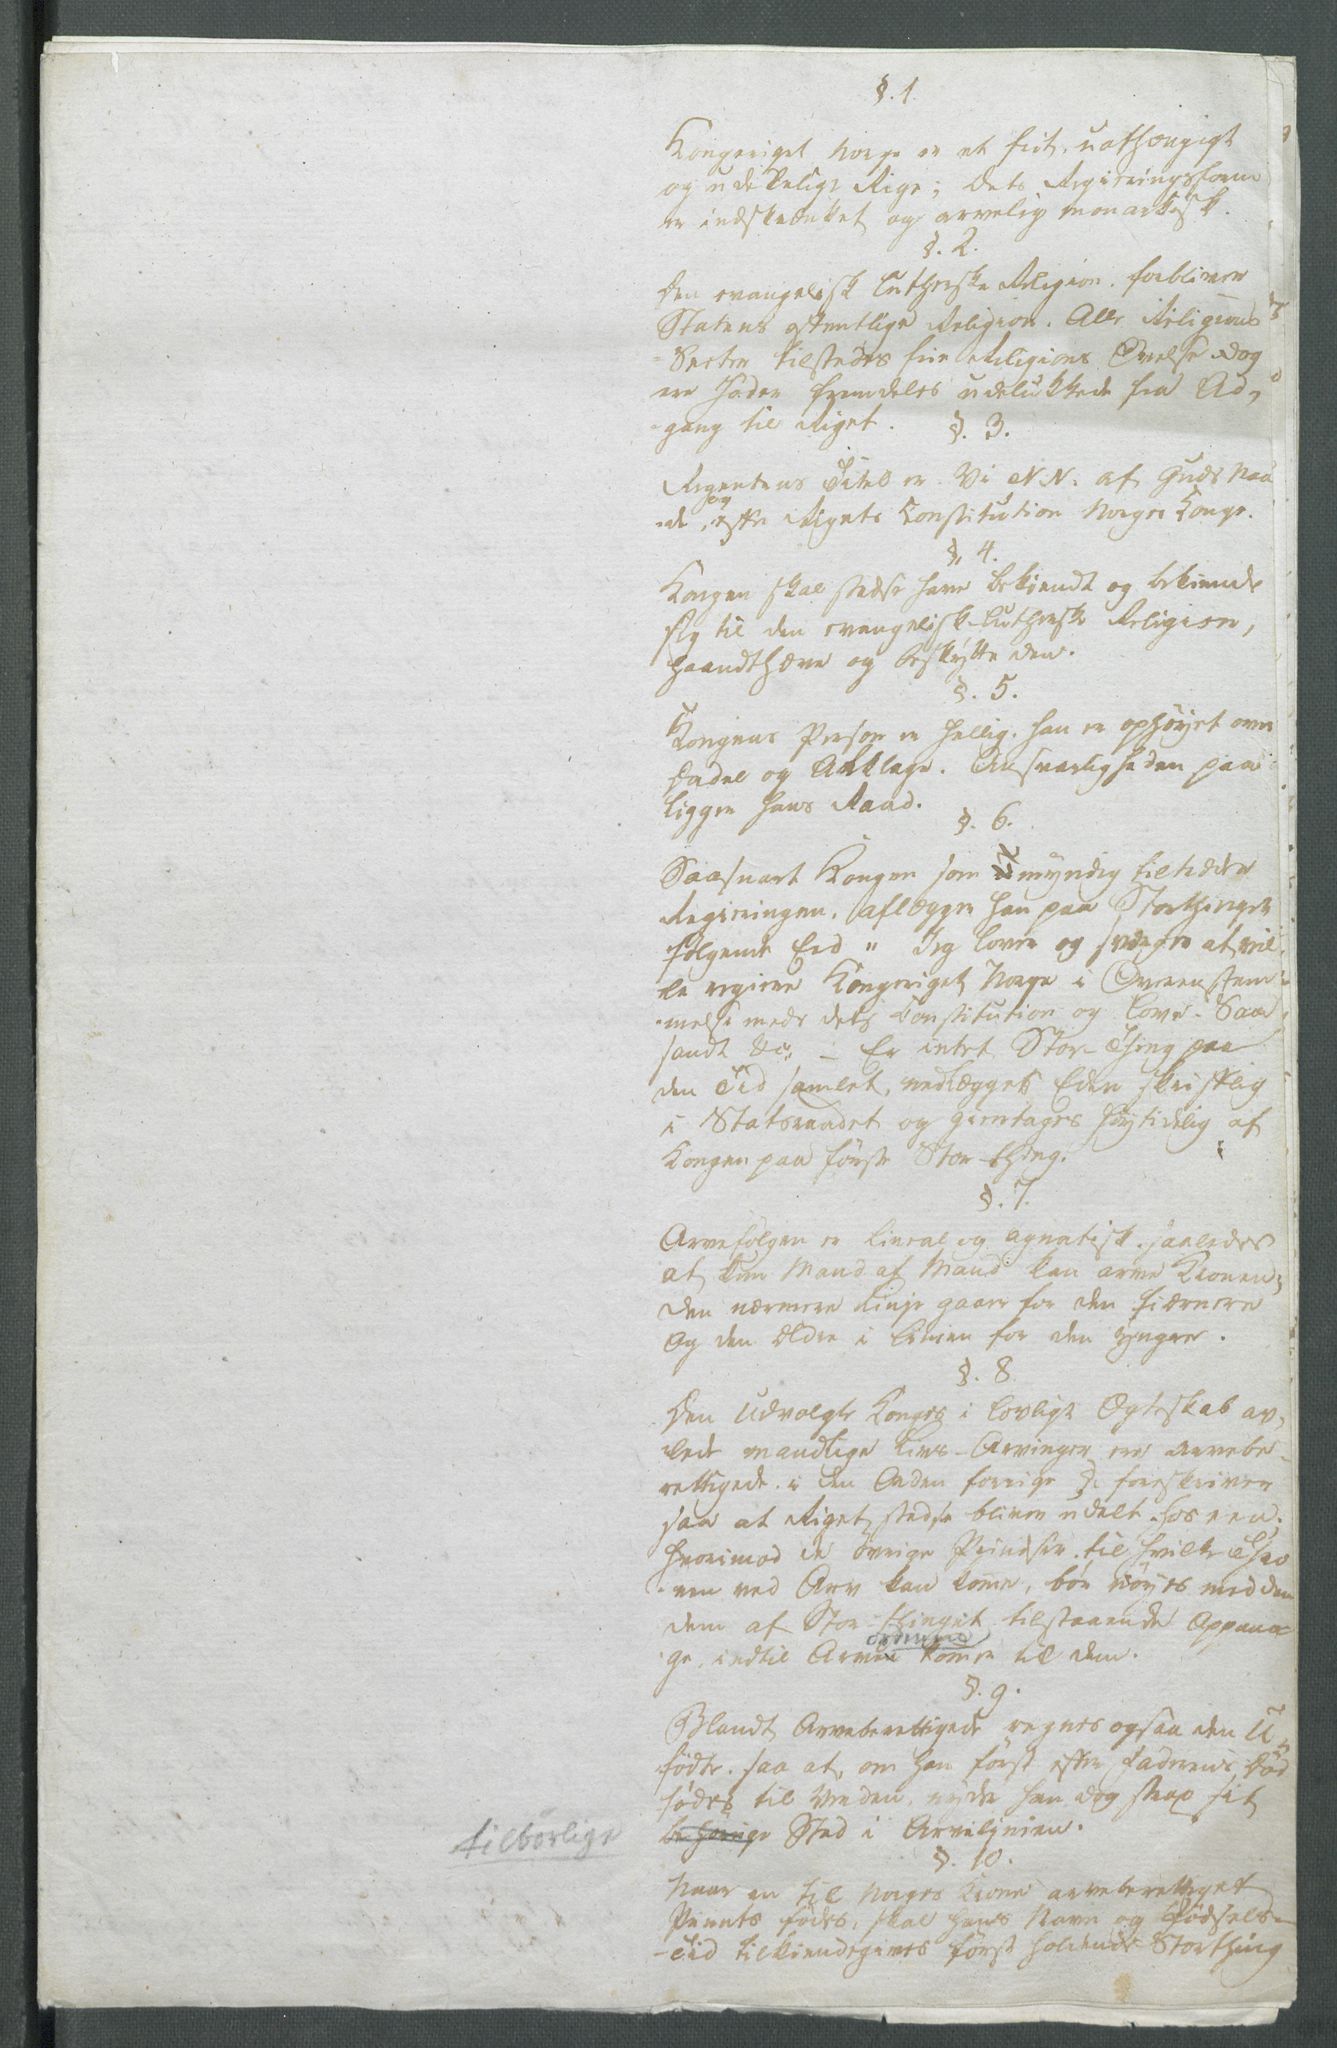 §. 1
Kongeriget Norge er et frit, uafhængigt
og udeleligt Rige; dets Regieringsform
er indskrænket og arvelig monarkisk.
§. 2.
Den evangelisk lutherske Religion forbliver
Statens offentlige Religion. Alle Religions
-Secter tilstedes frie Religions Øvelse dog
ere Jøder fremdeles udelukkede fra Ad-
-gang til Riget.
§. 3.
Regentens Titel er Vi N.N. af Guds Naa
-de, og efter Rigets Constitution Norges Konge.
§. 4.
Kongen skal stedse have bekiendt og bekiende
sig til den evangelisk-lutherske Religion,
haandthæve og beskytte den.
§. 5.
Kongens Person er hellig. han er ophøyet over
Dadel og Anklage. Ansvarligheden paa
ligger hans Raad.
§. 6.
Saasnart Kongen som myndig tiltræder
Regieringen, aflægger han paa Storthinget
følgende Eed " Jeg lover og sværger at vil-
le regiere Kongeriget Norge i Overeenstem-
-melse med dets Constitution og Love. Saa
sandt &c. - Er intet Stor-Thing paa
den Tid samlet, nedlægges Eden skriftlig
i Statsraadet og gientages høytidelig af
Kongen paa første Stor-thing.
§. 7.
Arvefølgen er lineal og agnatisk, saaledes
at kun Mand af Mand kan arve Kronen;
den nærmere Linje gaaer for den fiærnere
og den ældre i Linien for den yngre.
§. 8.
Den Udvalgte Konges i lovligt Ægteskab av-
lede mandlige Livs-Arvinger ere arvebe-
rettigede i den Orden forrige §. foreskriver
saa at Riget stedse bliver udelt hos een;
hvorimod de øvrige Prindser, til hvilke Thro
-nen ved Arv kan komme, bør nøyes med den
dem af Stor-thinget tilstaaende Appana-
ge, indtil Arve ordenen kommer til dem.
§. 9.
Blandt Arveberettigede regnes ogsaa den U-
fødte. saa at, om han først efter Faderens Død
fødes til Verden, nyder han dog strax sit
behørige Sted i Arvelinien.
tilbørlige
§. 10.
Naar en til Norges Krone arveberettiget
Prints fødes, skal hans Navn og Fødsels-
-Tid tilkiendegives først holdende Storthing